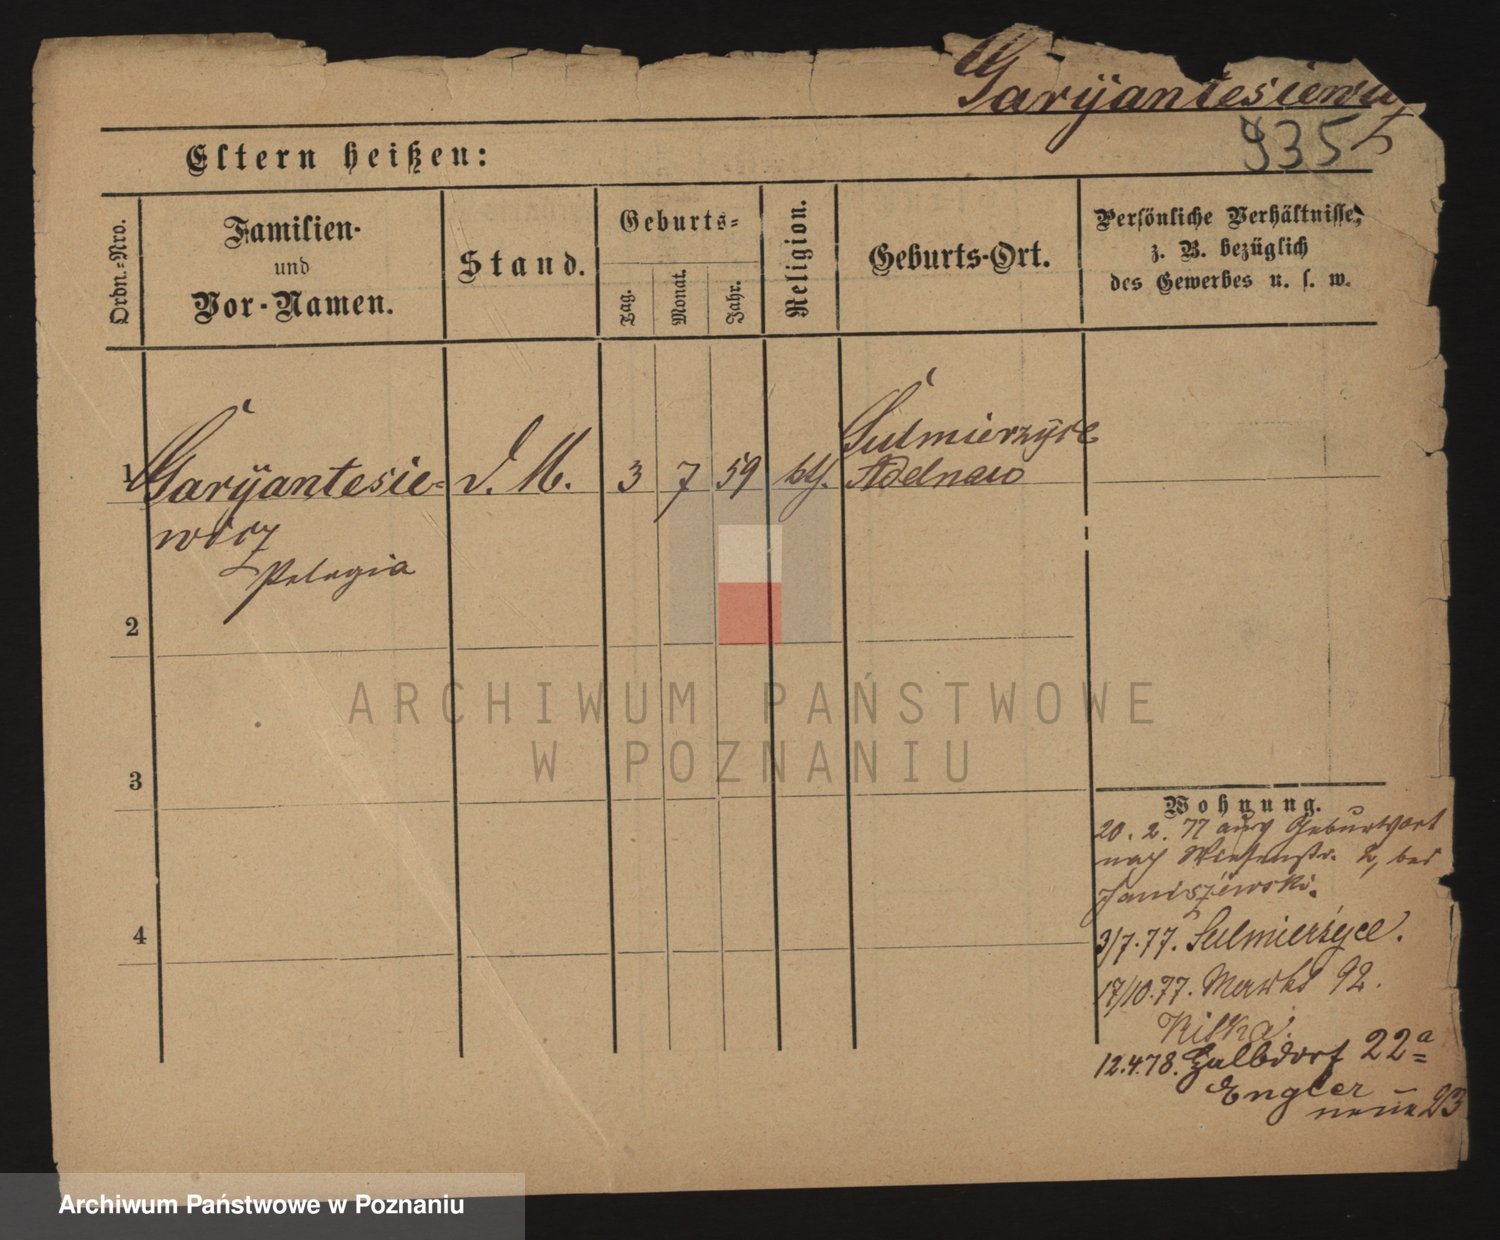 Garÿantesiewicz
935
Eltern heißen:
Ordn.=Nro.
Familien-
und
Vor-Namen.
Stand.
Geburts=
Tag.
Monat.
Jahr.
Religion.
Geburts-Ort.
Persönliche Verhältnisse,
z. B. bezüglich
des Gewerbes u. s. w.
1
Garÿantesie-
wicz
Pelagia
d. M.
3
7
59
kth.
Sulmierzÿce
Adelnau
2
3
4
Wohnung.
20. 2. 77 aus Geburtsort
nach Wiesenstr. 2, bei
Janiszewski.
3/7.77. Sulmierzyce.
17/10.77. Markt 92.
12.4.78. Halbdorf 22a
Engler
neue 23
ARCHIWUM PAŃSTWOWE
W POZNANIU
Archiwum Państwowe w Poznaniu